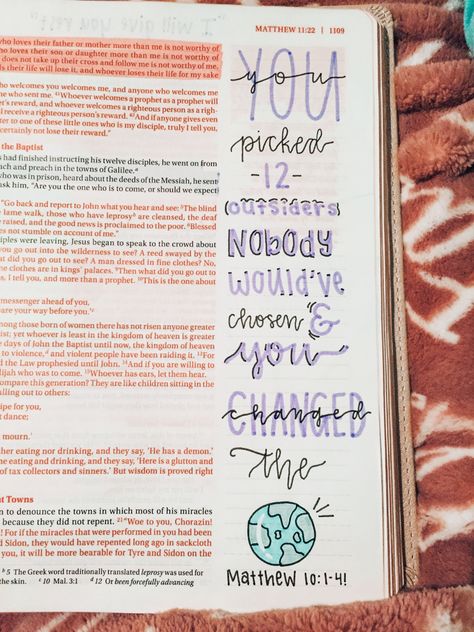 MATTHEW 11:22 | 1109
who loves their father or mother more than me is not worthy of
who loves their son or daughter more than me is not worthy of
does not take up their cross and follow me is not worthy of me.
ds their life will lose it, and whoever loses their life for my sake
who welcomes you welcomes me, and anyone who welcomes me
me who sent me. 41Whoever welcomes a prophet as a prophet will
et's reward, and whoever welcomes a righteous person as a righ-
l receive a righteous person's reward. 42And if anyone gives even
ter to one of these little ones who is my disciple, truly I tell you,
certainly not lose their reward."
the Baptist
s had finished instructing his twelve disciples, he went on from
ach and preach in the towns of Galilee.
who was in prison, heard about the deeds of the Messiah, he sent
ask him, "Are you the one who is to come, or should we expect
"Go back and report to John what you hear and see: 5The blind
e lame walk, those who have leprosy b are cleansed, the deaf
raised, and the good news is proclaimed to the poor. 6Blessed
es not stumble on account of me."
iples were leaving, Jesus began to speak to the crowd about
you go out into the wilderness to see? A reed swayed by the
at did you go out to see? A man dressed in fine clothes? No,
ne clothes are in kings' palaces. 9Then what did you go out to
s, I tell you, and more than a prophet. 10This is the one about
messenger ahead of you,
pare your way before you.'c
mong those born of women there has not risen anyone greater
tist; yet whoever is least in the kingdom of heaven is greater
e days of John the Baptist until now, the kingdom of heaven
to violence,d and violent people have been raiding it. 13For
d the Law prophesied until John. 14And if you are willing to
lijah who was to come. 15Whoever has ears, let them hear.
mpare this generation? They are like children sitting in the
alling out to others:
ipe for you,
t dance;
mourn.'
ther eating nor drinking, and they say, 'He has a demon.'
e eating and drinking, and they say, 'Here is a glutton and
of tax collectors and sinners.' But wisdom is proved right
nt Towns
n to denounce the towns in which most of his miracles
because they did not repent. 21"Woe to you, Chorazin!
! For if the miracles that were performed in you had been
d Sidon, they would have repented long ago in sackcloth
you, it will be more bearable for Tyre and Sidon on the
b 5 The Greek word traditionally translated leprosy was used for
the skin. c 10 Mal. 3:1 d 12 Or been forcefully advancing
YOU
you
picked
-12-
outsiders
NOBODY
would've
chosen &
"you"
CHANGED
changed
the
Matthew 10:1-4!